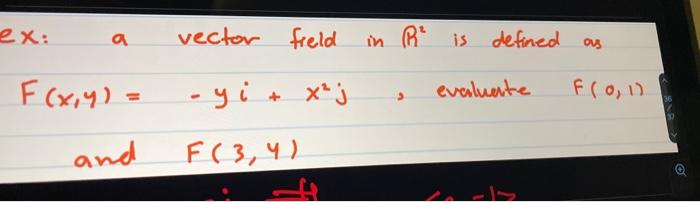 ex: a vector field in ℝ² is defined as
F(x,y) = - y i + x² j , evaluate F(0,1)
and F(3,4)
36
37